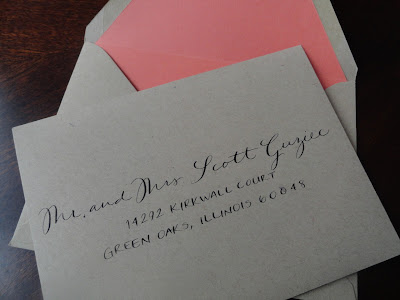 Mr. and Mrs Scott Guziec
14292 KIRKWALL COURT
GREEN OAKS, ILLINOIS 60048